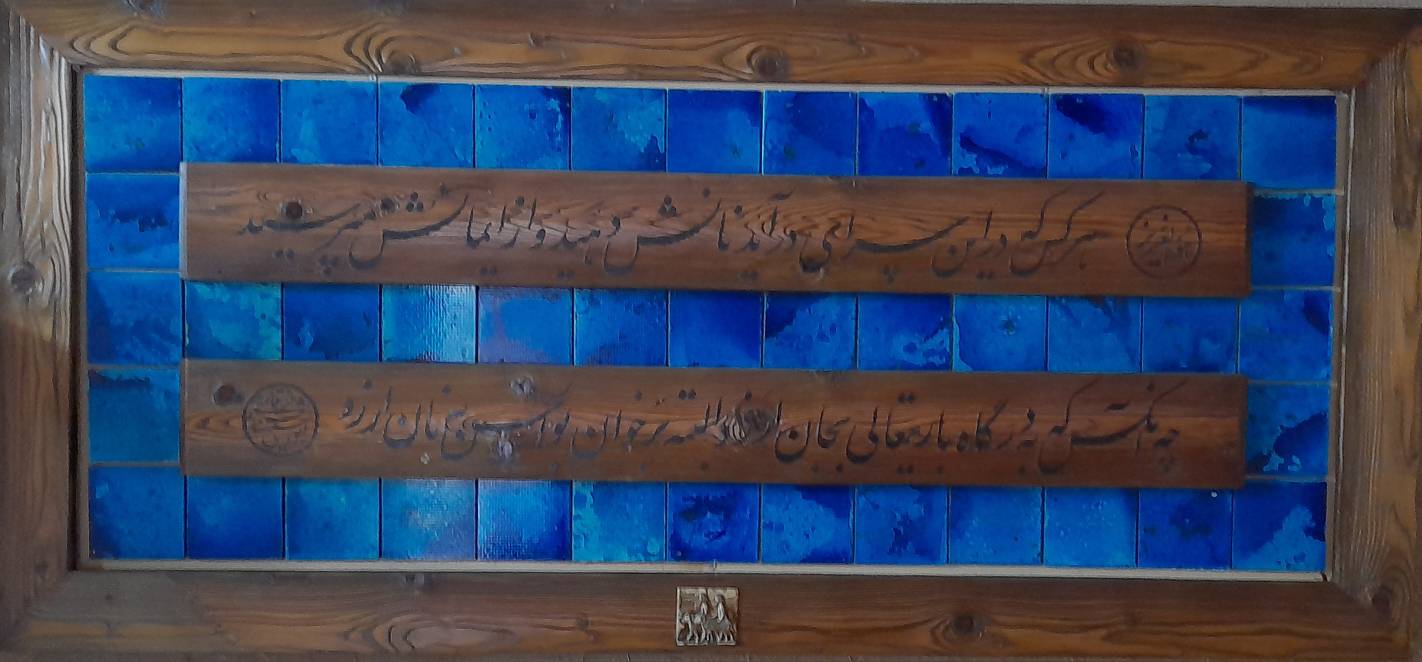 هرکس که در این سرای درآید نانش دهید و از ایمانش مپرسید
چه آنکس که بدرگاه باریتعالی بجان ارزد البته بر خوان بوالحسن بنان ارزد